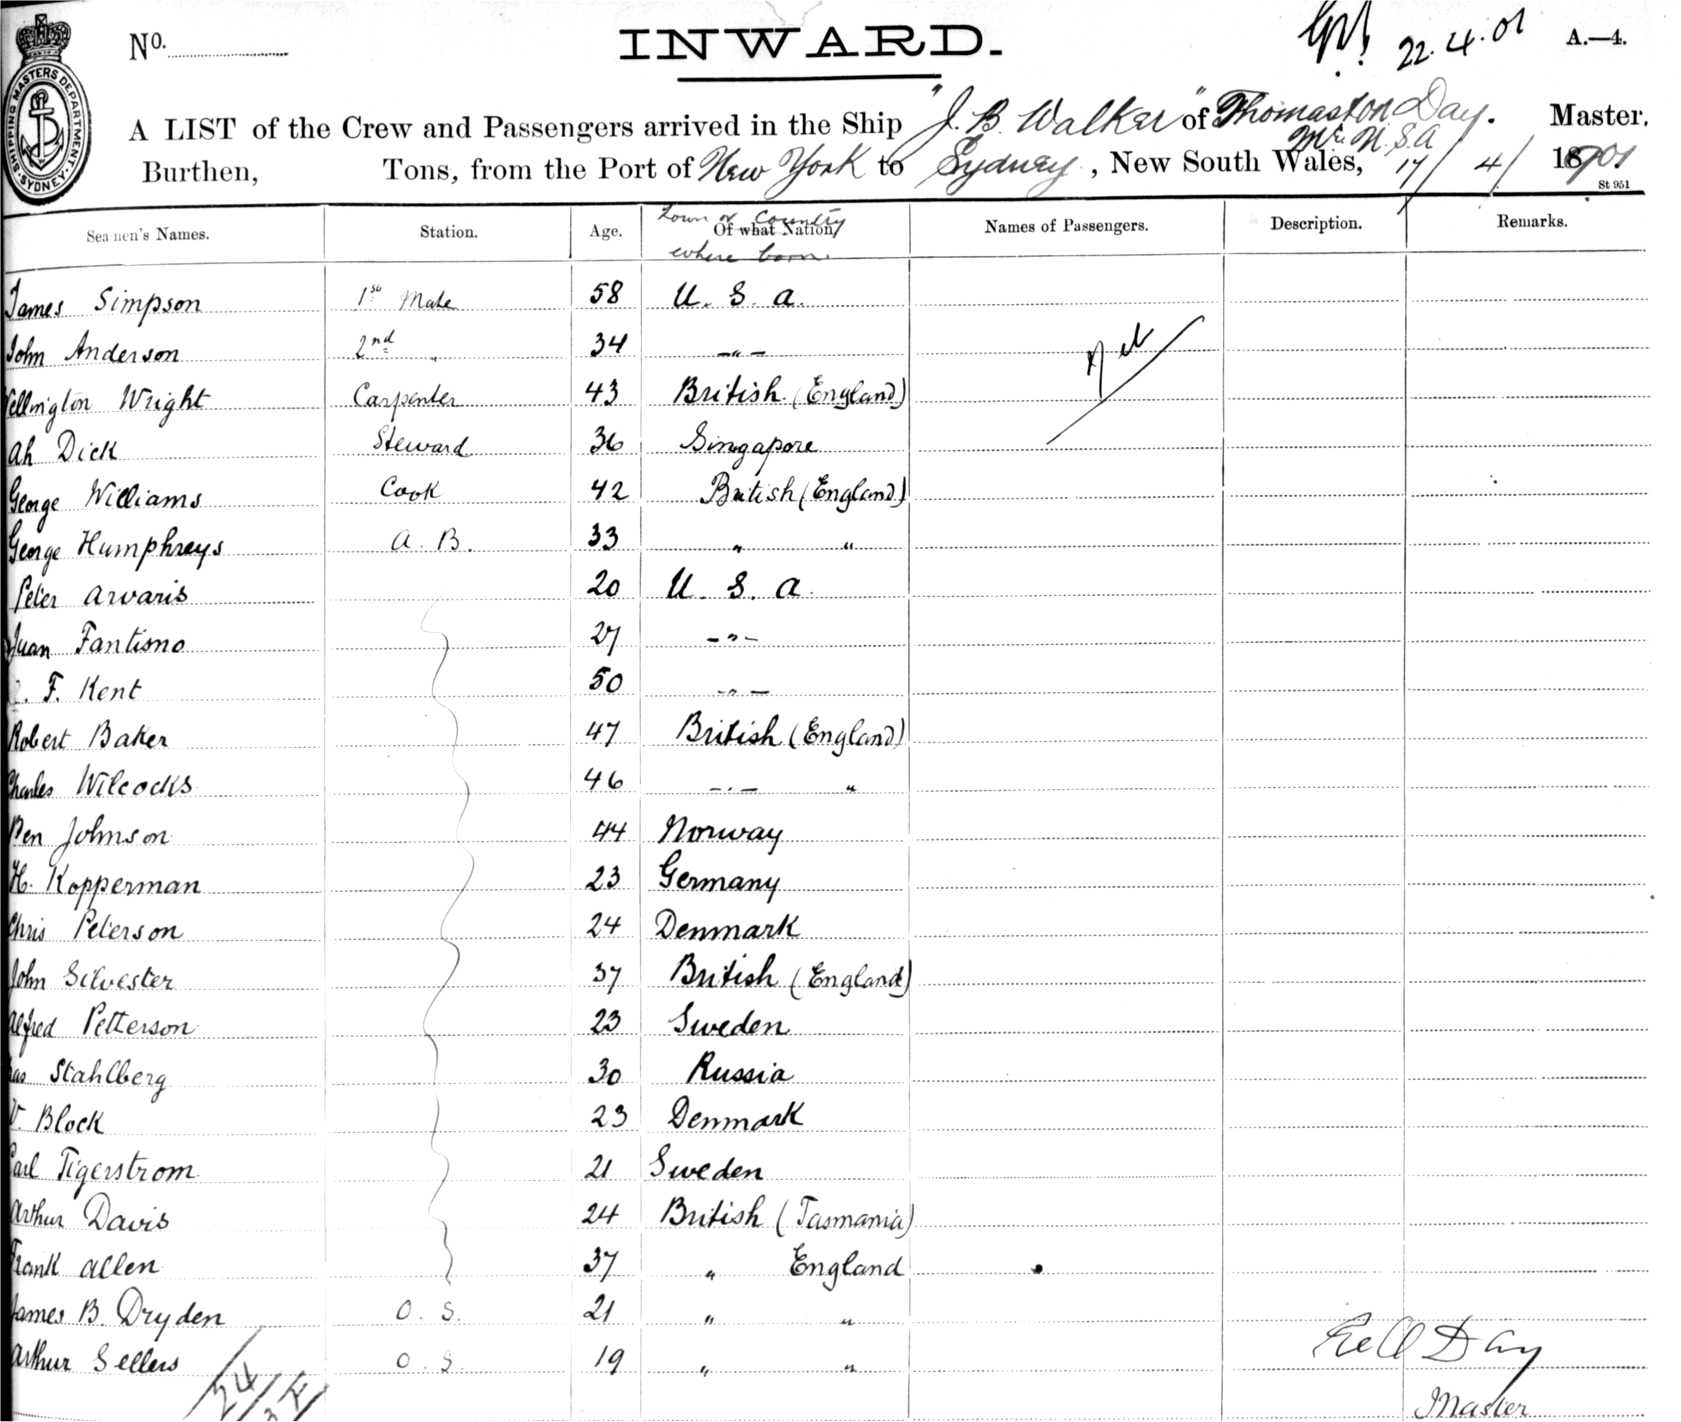 No. INWARD. 22.4.01 A.—4.
SHIPPING MASTERS DEPARTMENT. SYDNEY.
A LIST of the Crew and Passengers arrived in the Ship "J. B. Walker" of Thomaston Day. Master,
U.S.A
Burthen, Tons, from the Port of New York to Sydney, New South Wales, 17/ 4/ 1901
St 951
Town or Country
Seamen's Names. Station. Age. Of what Nation Names of Passengers. Description. Remarks.
where born.
James Simpson 1st Mate 58 U. S. A.
John Anderson 2nd " 34 -"-
Wellington Wright Carpenter 43 British (England)
Nil
Ah Dick Steward 36 Singapore
George Williams Cook 42 British (England)
George Humphreys A. B. 33 " "
Peter Arvaris 20 U. S. A.
Juan Fantismo 27 -"-
F. Kent 50 -"-
Robert Baker 47 British (England)
Charles Wilcocks 46 -"- "
Ben Johnson 44 Norway
H. Kopperman 23 Germany
Chris Peterson 24 Denmark
John Silvester 37 British (England)
Alfred Petterson 23 Sweden
Stahlberg 30 Russia
Block 23 Denmark
Carl Tigerstrom 21 Sweden
Arthur Davis 24 British (Tasmania)
Frank Allen 37 " England
James B. Dryden O. S. 21 " "
Arthur Sellers O. S. 19 " "
24
Day
Master